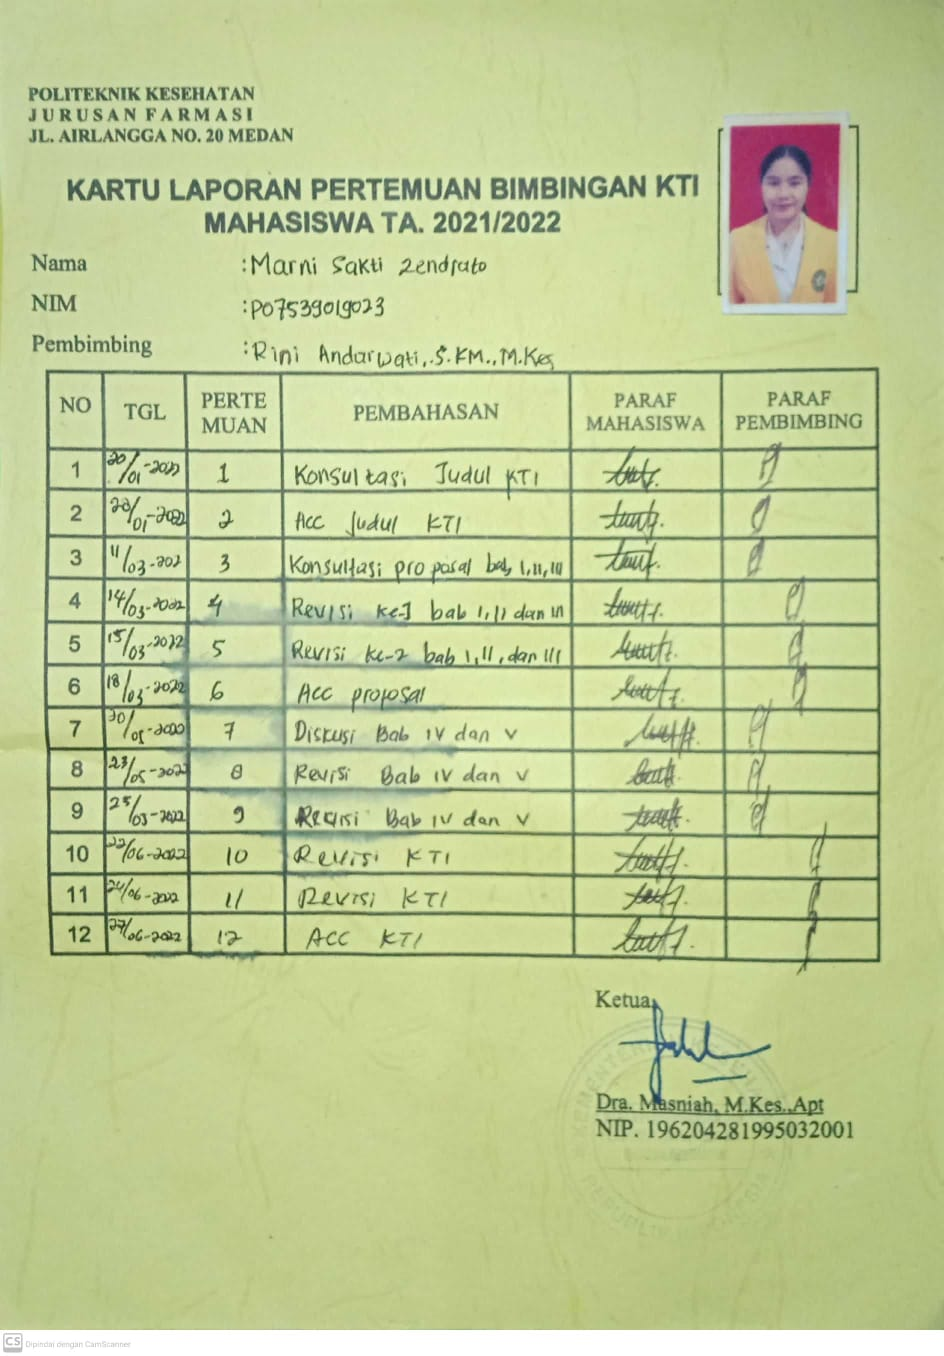 POLITEKNIK KESEHATAN
JURUSAN FARMASI
JL. AIRLANGGA NO. 20 MEDAN
KARTU LAPORAN PERTEMUAN BIMBINGAN KTI
MAHASISWA TA. 2021/2022
Nama :Marni Sakti Zendrato
NIM :P07539019023
Pembimbing :Rini Andarwati, S.KM., M.Kes
NO TGL PERTE MUAN PEMBAHASAN PARAF MAHASISWA PARAF PEMBIMBING
1 20/01-2022 1 Konsultasi Judul KTI
2 1 2 Acc Judul KTI
3 11/03-202 3 Konsultasi proposal bab I,II,III
4 14/03-2022 4 Revisi ke-I bab I,II dan III
5 15/03-2022 5 Revisi ke-2 bab I,II,dan III
6 18/03-2022 6 Acc proposal
7 7 Diskusi Bab IV dan V
8 23/05-202 8 Revisi Bab IV dan V
9 9 Revisi Bab IV dan V
10 22/06-2022 10 Revisi KTI
11 24/06-2022 11 Revisi KTI
12 27/06-2022 12 ACC KTI
Ketua,
Dra. Masniah, M.Kes.,Apt
NIP. 196204281995032001
CS Dipindai dengan CamScanner